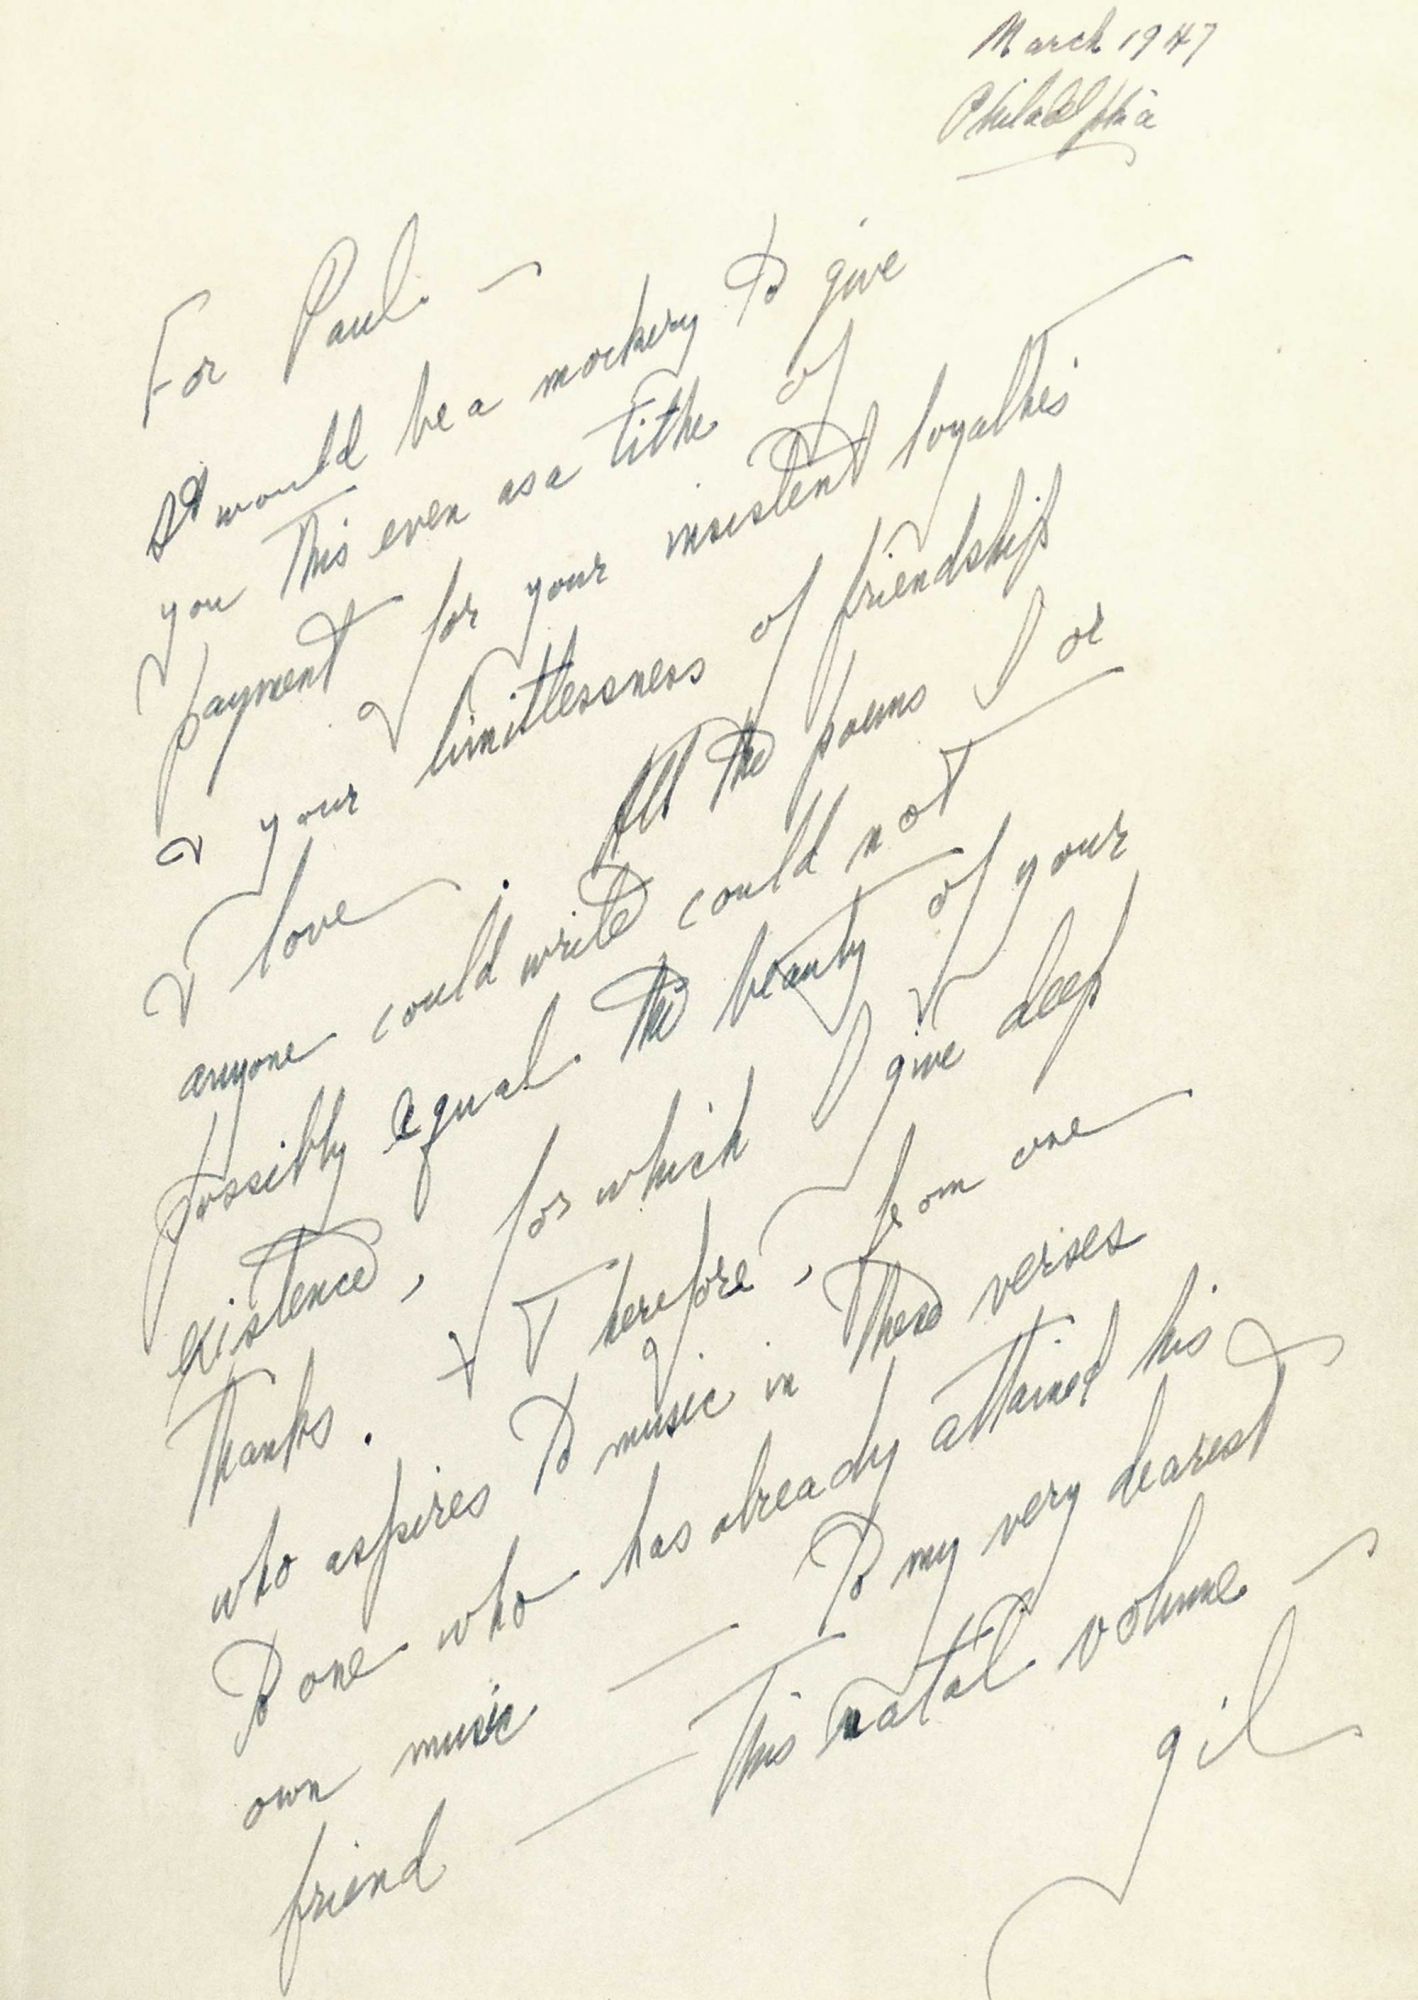 March 1947
Philadelphia
For Paul —
It would be a mockery to give
you this even as a tithe of
payment for your insistent loyalties
& your limitlessness of friendship
& love. All the poems I or
anyone could write could not
possibly equal the beauty of your
existence, for which I give deep
thanks. & therefore, from one
who aspires to music in these verses
to one who has already attained his
own music — to my very dearest
friend — this natal volume —
gil